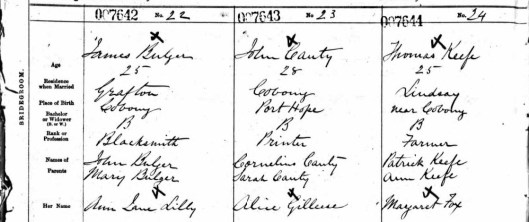 007642 No. 22 007643 No. 23 007644 No. 24
BRIDEGROOM.
James Bulger John Canty Thomas Keefe
Age 25 28 25
Residence when Married Grafton Cobourg Lindsay
Place of Birth Cobourg Port Hope near Cobourg
Bachelor or Widower (B. or W.) B B B
Rank or Profession Blacksmith Printer Farmer
Names of Parents John Bulger Cornelius Canty Patrick Keefe
Mary Bulger Sarah Canty Ann Keefe
Her Name Ann Jane Lilly Alice Gilleese Margaret Fox